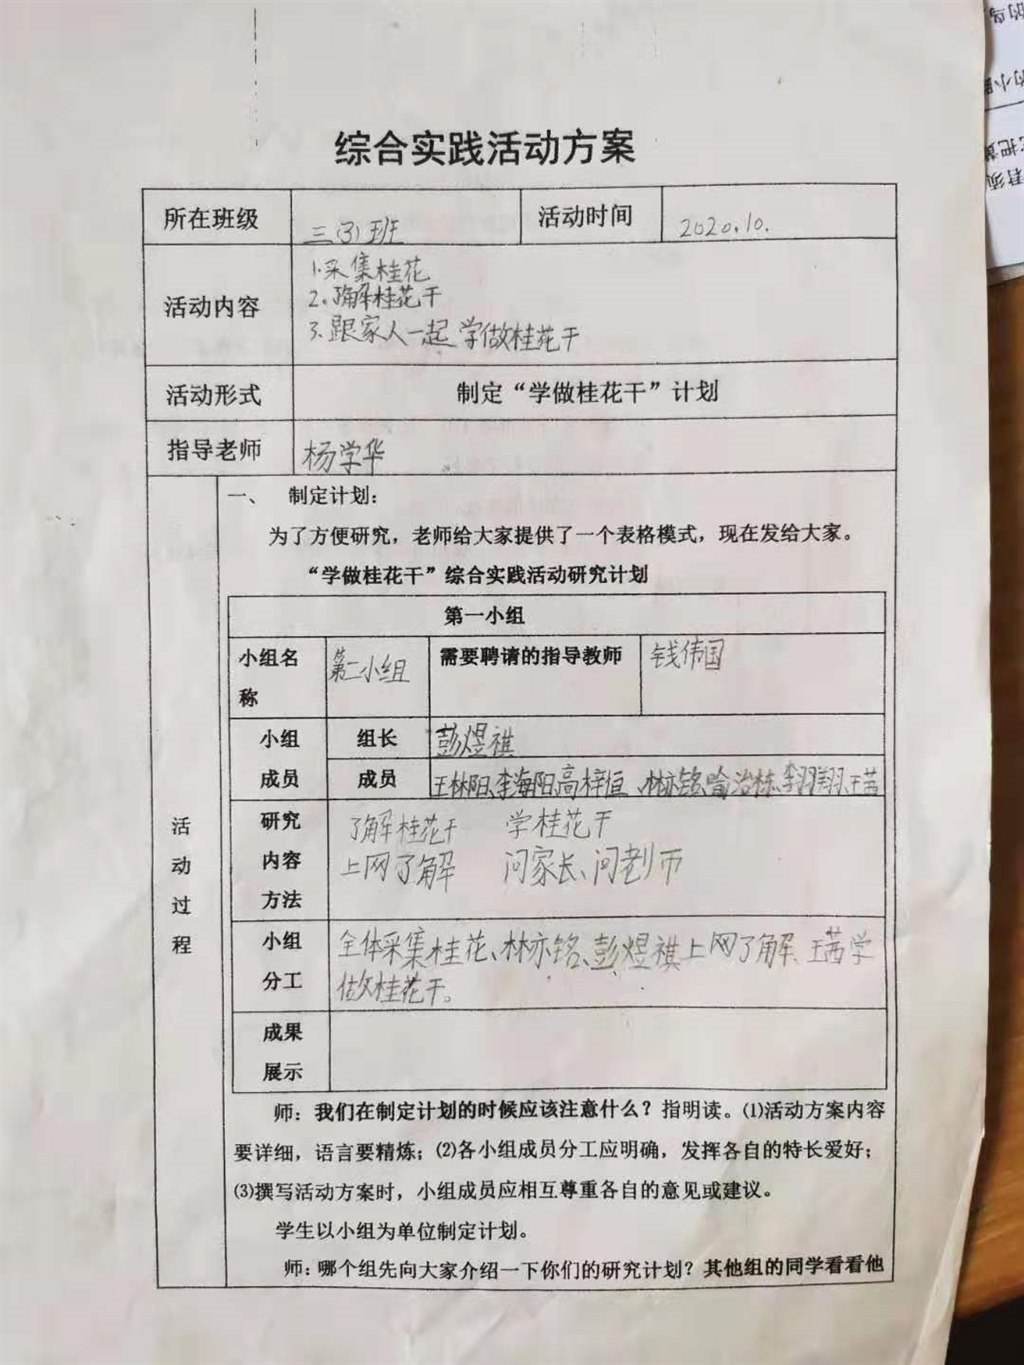 综合实践活动方案
所在班级 三(3)班 活动时间 2020.10.
活动内容
1.采集桂花
2.了解桂花干
3.跟家人一起学做桂花干
活动形式 制定“学做桂花干”计划
指导老师 杨学华
活动过程
一、 制定计划：
为了方便研究，老师给大家提供了一个表格模式，现在发给大家。
“学做桂花干”综合实践活动研究计划
第一小组
小组名称 第二小组 需要聘请的指导教师 钱伟国
小组成员 组长 彭煜祺
成员 王林阳、李海阳、高梓恒、林亦铭、喻治栋、李羽翔、王茜
研究内容方法
了解桂花干 学桂花干
上网了解 问家长、问老师
小组分工
全体采集桂花、林亦铭、彭煜祺上网了解、王茜学
做桂花干。
成果展示
师：我们在制定计划的时候应该注意什么？指明读。⑴活动方案内容
要详细，语言要精炼；⑵各小组成员分工应明确，发挥各自的特长爱好；
⑶撰写活动方案时，小组成员应相互尊重各自的意见或建议。
学生以小组为单位制定计划。
师：哪个组先向大家介绍一下你们的研究计划？其他组的同学看看他